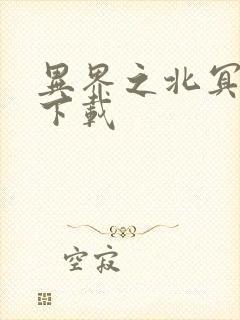 異界之北冥
下載
空寂